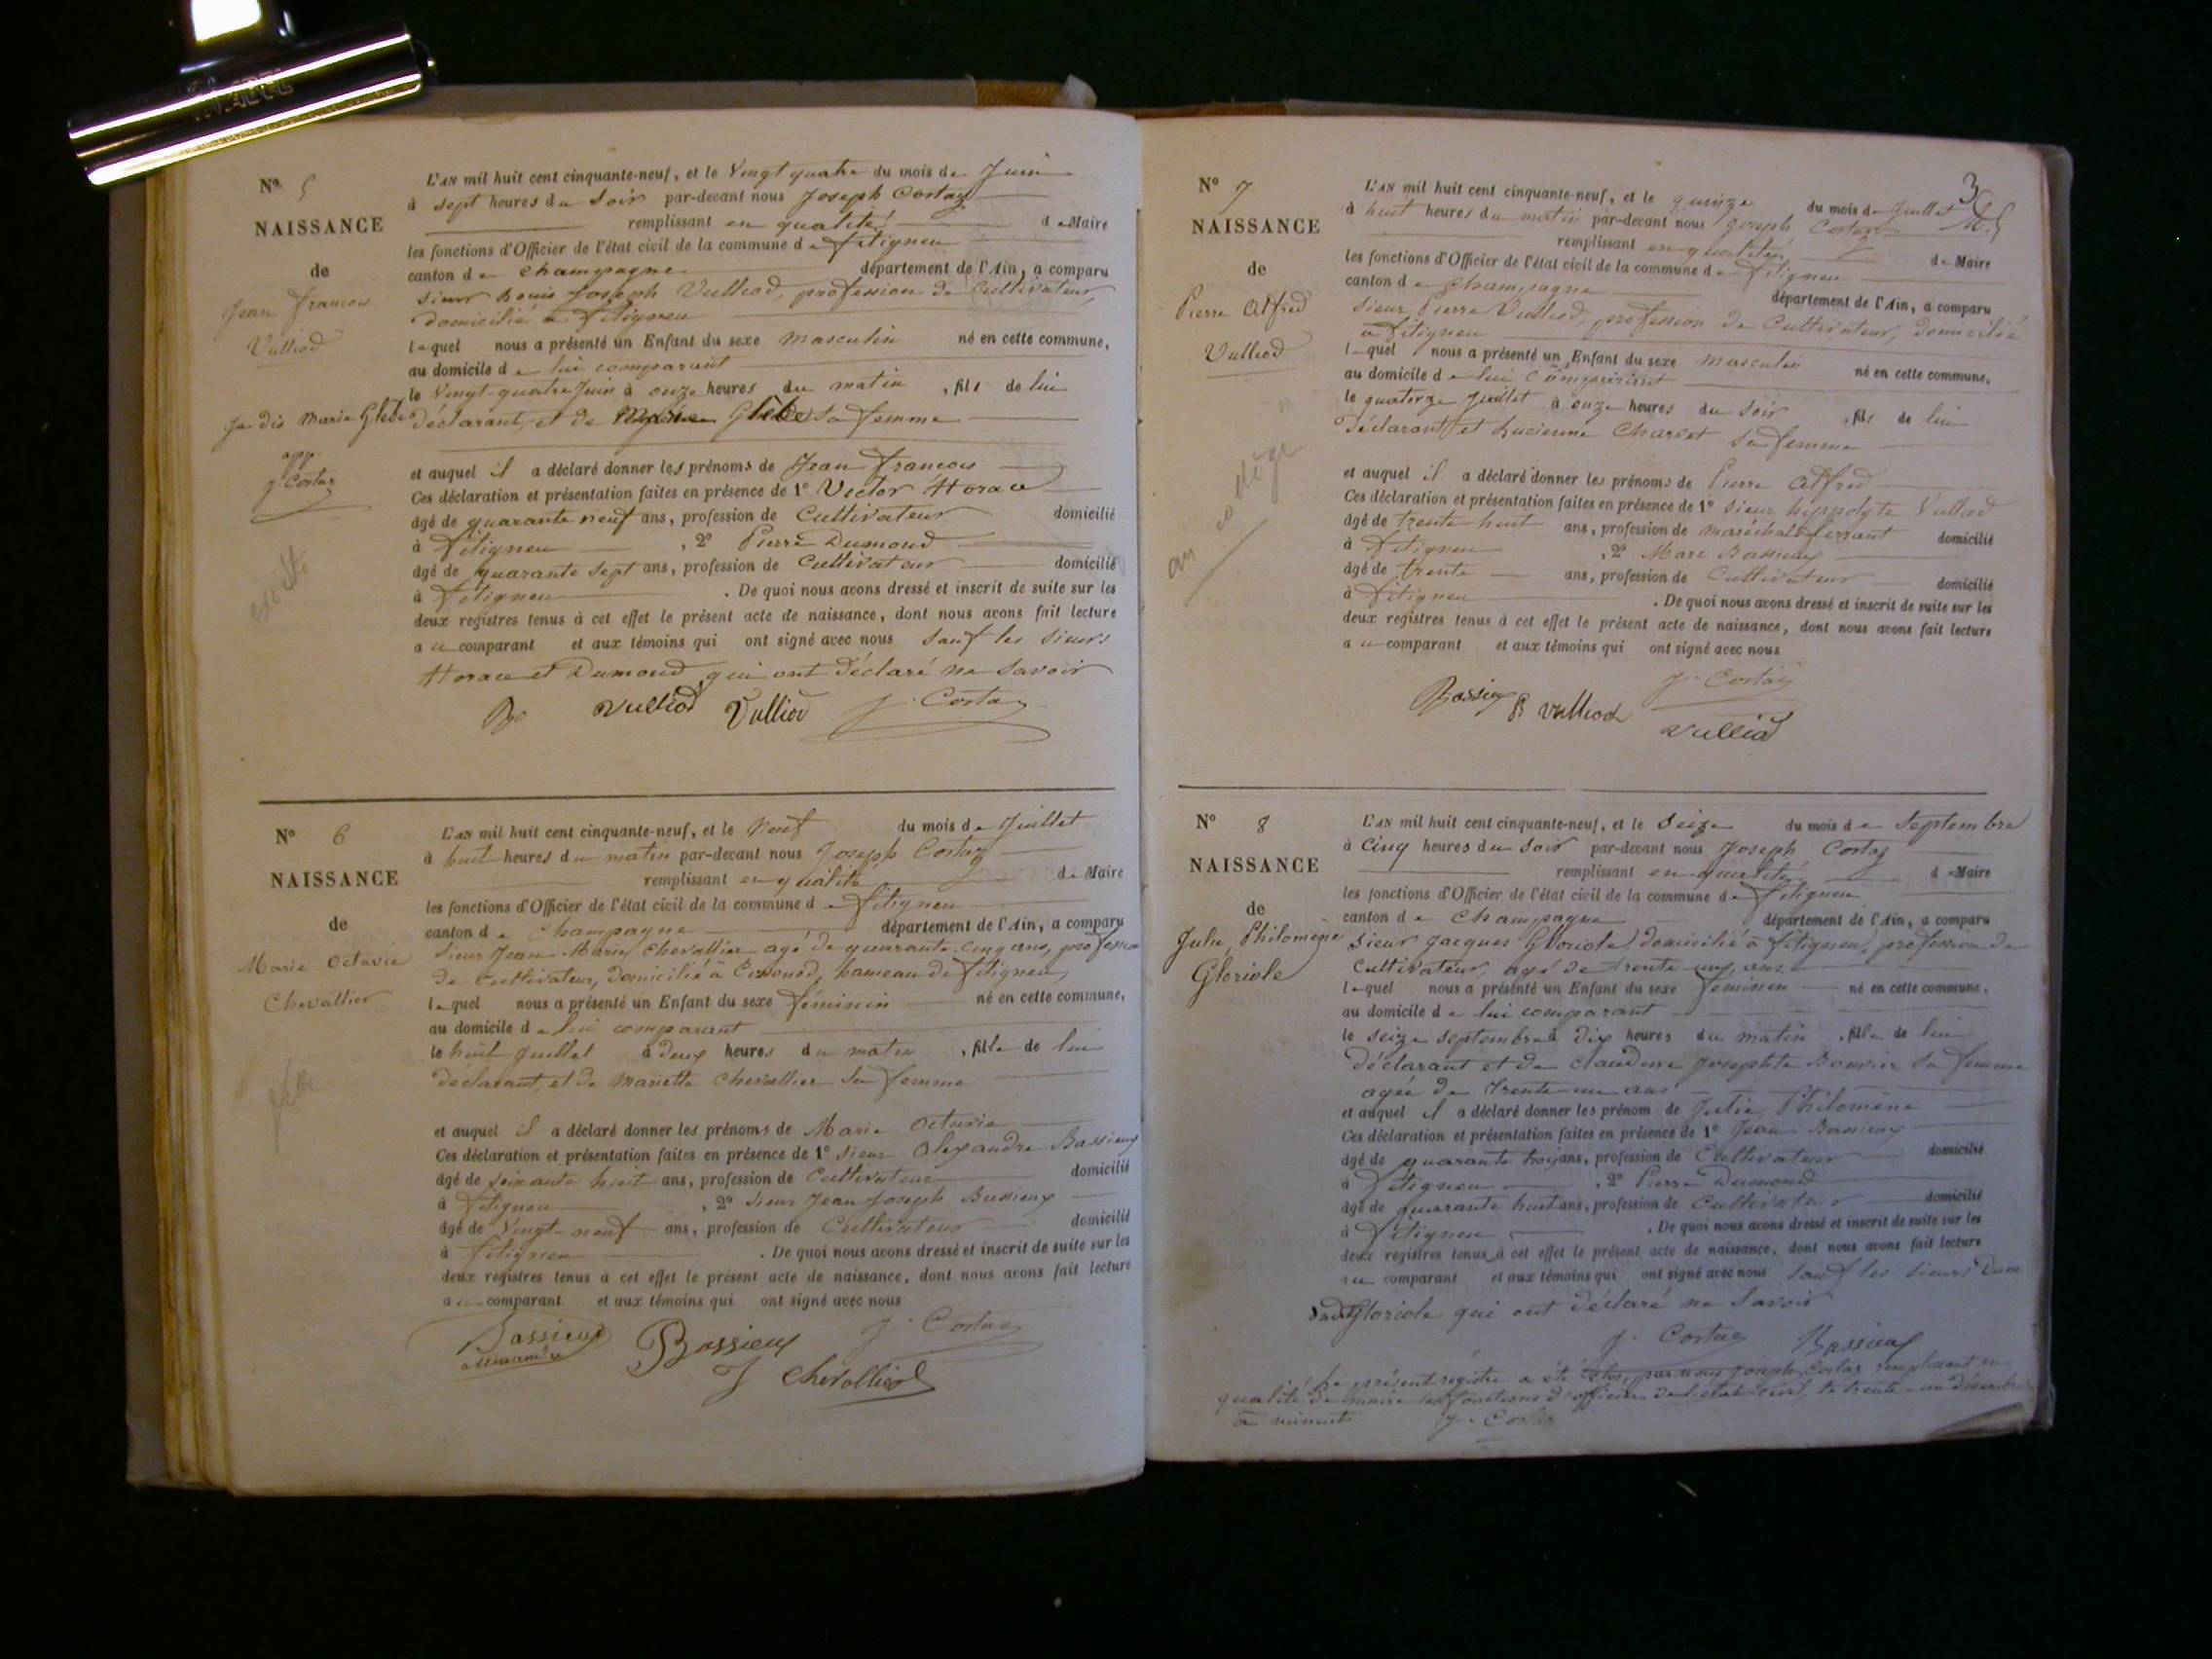 Nº 5
NAISSANCE
de
Jean François
Vulliod
Je dis Marie Glèbe
app.
J. Costaz
L'AN mil huit cent cinquante-neuf, et le Vingt quatre du mois de Juin
à sept heures du Soir par-devant nous Joseph Costaz
remplissant en qualité de Maire
les fonctions d'Officier de l'état civil de la commune de fitigneu
canton de Champagne département de l'Ain, a comparu
sieur Louis Joseph Vulliod, profession de Cultivateur,
domicilié à fitigneu
lequel nous a présenté un Enfant du sexe masculin né en cette commune,
au domicile de lui comparant
le Vingt-quatre Juin à onze heures du matin , fils de lui
déclarant, et de Glèbe sa femme
et auquel il a déclaré donner les prénoms de Jean françois
Ces déclaration et présentation faites en présence de 1º Victor Horace
âgé de quarante neuf ans, profession de Cultivateur domicilié
à fitigneu , 2º Pierre Dumond
âgé de quarante sept ans, profession de Cultivateur domicilié
à fitigneu . De quoi nous avons dressé et inscrit de suite sur les
deux registres tenus à cet effet le présent acte de naissance, dont nous avons fait lecture
au comparant et aux témoins qui ont signé avec nous sauf les sieurs
Horace et Dumond qui ont déclaré ne savoir
Vulliod Vulliod J. Costaz
Nº 6
NAISSANCE
de
Marie Octavie
Chevallier
fille
L'AN mil huit cent cinquante-neuf, et le Neuf du mois de Juillet
à huit heures du matin par-devant nous Joseph Costaz
remplissant en qualité de Maire
les fonctions d'Officier de l'état civil de la commune de fitigneu
canton de Champagne département de l'Ain, a comparu
Sieur Jean Marie Chevallier agé de quarante cinq ans, profession
de cultivateur, domicilié à hameau de fitigneu,
lequel nous a présenté un Enfant du sexe féminin né en cette commune,
au domicile de lui comparant
le huit Juillet à deux heures du matin , fille de lui
déclarant, et de Mariette Chevallier sa femme
et auquel il a déclaré donner les prénoms de Marie Octavie
Ces déclaration et présentation faites en présence de 1º sieur Alexandre Bassieux
âgé de soixante huit ans, profession de Cultivateur domicilié
à fitigneu , 2º sieur Jean Joseph Bassieux
âgé de Vingt-neuf ans, profession de Cultivateur domicilié
à fitigneu . De quoi nous avons dressé et inscrit de suite sur les
deux registres tenus à cet effet le présent acte de naissance, dont nous avons fait lecture
au comparant et aux témoins qui ont signé avec nous
Bassieux Bassieux J. Costaz
J Chevallier
3
Nº 7
NAISSANCE
de
Pierre Alfred
Vulliod
L'AN mil huit cent cinquante-neuf, et le quinze du mois de Juillet
à huit heures du matin par-devant nous Joseph Costaz
remplissant en qualité de Maire
les fonctions d'Officier de l'état civil de la commune de fitigneu
canton de Champagne département de l'Ain, a comparu
sieur Pierre Vulliod, profession de Cultivateur, domicilié
à fitigneu
lequel nous a présenté un Enfant du sexe masculin né en cette commune,
au domicile de lui comparant
le quatorze Juillet à onze heures du soir , fils de lui
déclarant et Lucienne Charvet sa femme
et auquel il a déclaré donner les prénoms de Pierre Alfred
Ces déclaration et présentation faites en présence de 1º sieur hyppolyte Vulliod
âgé de trente huit ans, profession de maréchal ferrant domicilié
à fitigneu , 2º Marc Bassieux
âgé de trente ans, profession de Cultivateur domicilié
à fitigneu . De quoi nous avons dressé et inscrit de suite sur les
deux registres tenus à cet effet le présent acte de naissance, dont nous avons fait lecture
au comparant et aux témoins qui ont signé avec nous
J. Costaz
Bassieux Vulliod
Vulliod
Nº 8
NAISSANCE
de
Julie Philomène
Gloriole
L'AN mil huit cent cinquante-neuf, et le seize du mois de Septembre
à cinq heures du soir par-devant nous Joseph Costaz
remplissant en qualité de Maire
les fonctions d'Officier de l'état civil de la commune de fitigneu
canton de Champagne département de l'Ain, a comparu
sieur Jacques Gloriole, domicilié à fitigneu, profession de
Cultivateur, agé de trente ans
lequel nous a présenté un Enfant du sexe féminin né en cette commune,
au domicile de lui comparant
le seize septembre à dix heures du matin , fille de lui
déclarant et de Claudine Josephte sa femme
agée de trente un ans
et auquel il a déclaré donner les prénom de Julie Philomène
Ces déclaration et présentation faites en présence de 1º Jean Bassieux
âgé de quarante trois ans, profession de Cultivateur domicilié
à fitigneu , 2º Pierre Dumond
âgé de quarante huit ans, profession de Cultivateur domicilié
à fitigneu . De quoi nous avons dressé et inscrit de suite sur les
deux registres tenus à cet effet le présent acte de naissance, dont nous avons fait lecture
au comparant et aux témoins qui ont signé avec nous sauf les sieurs Dum
Gloriole qui ont déclaré ne savoir
J. Costaz Bassieux
Le présent registre a été clos, par nous Joseph Costaz remplissant en
qualité de maire les fonctions d'officier de l'état civil, le trente-un décembre
à minuit J. Costaz